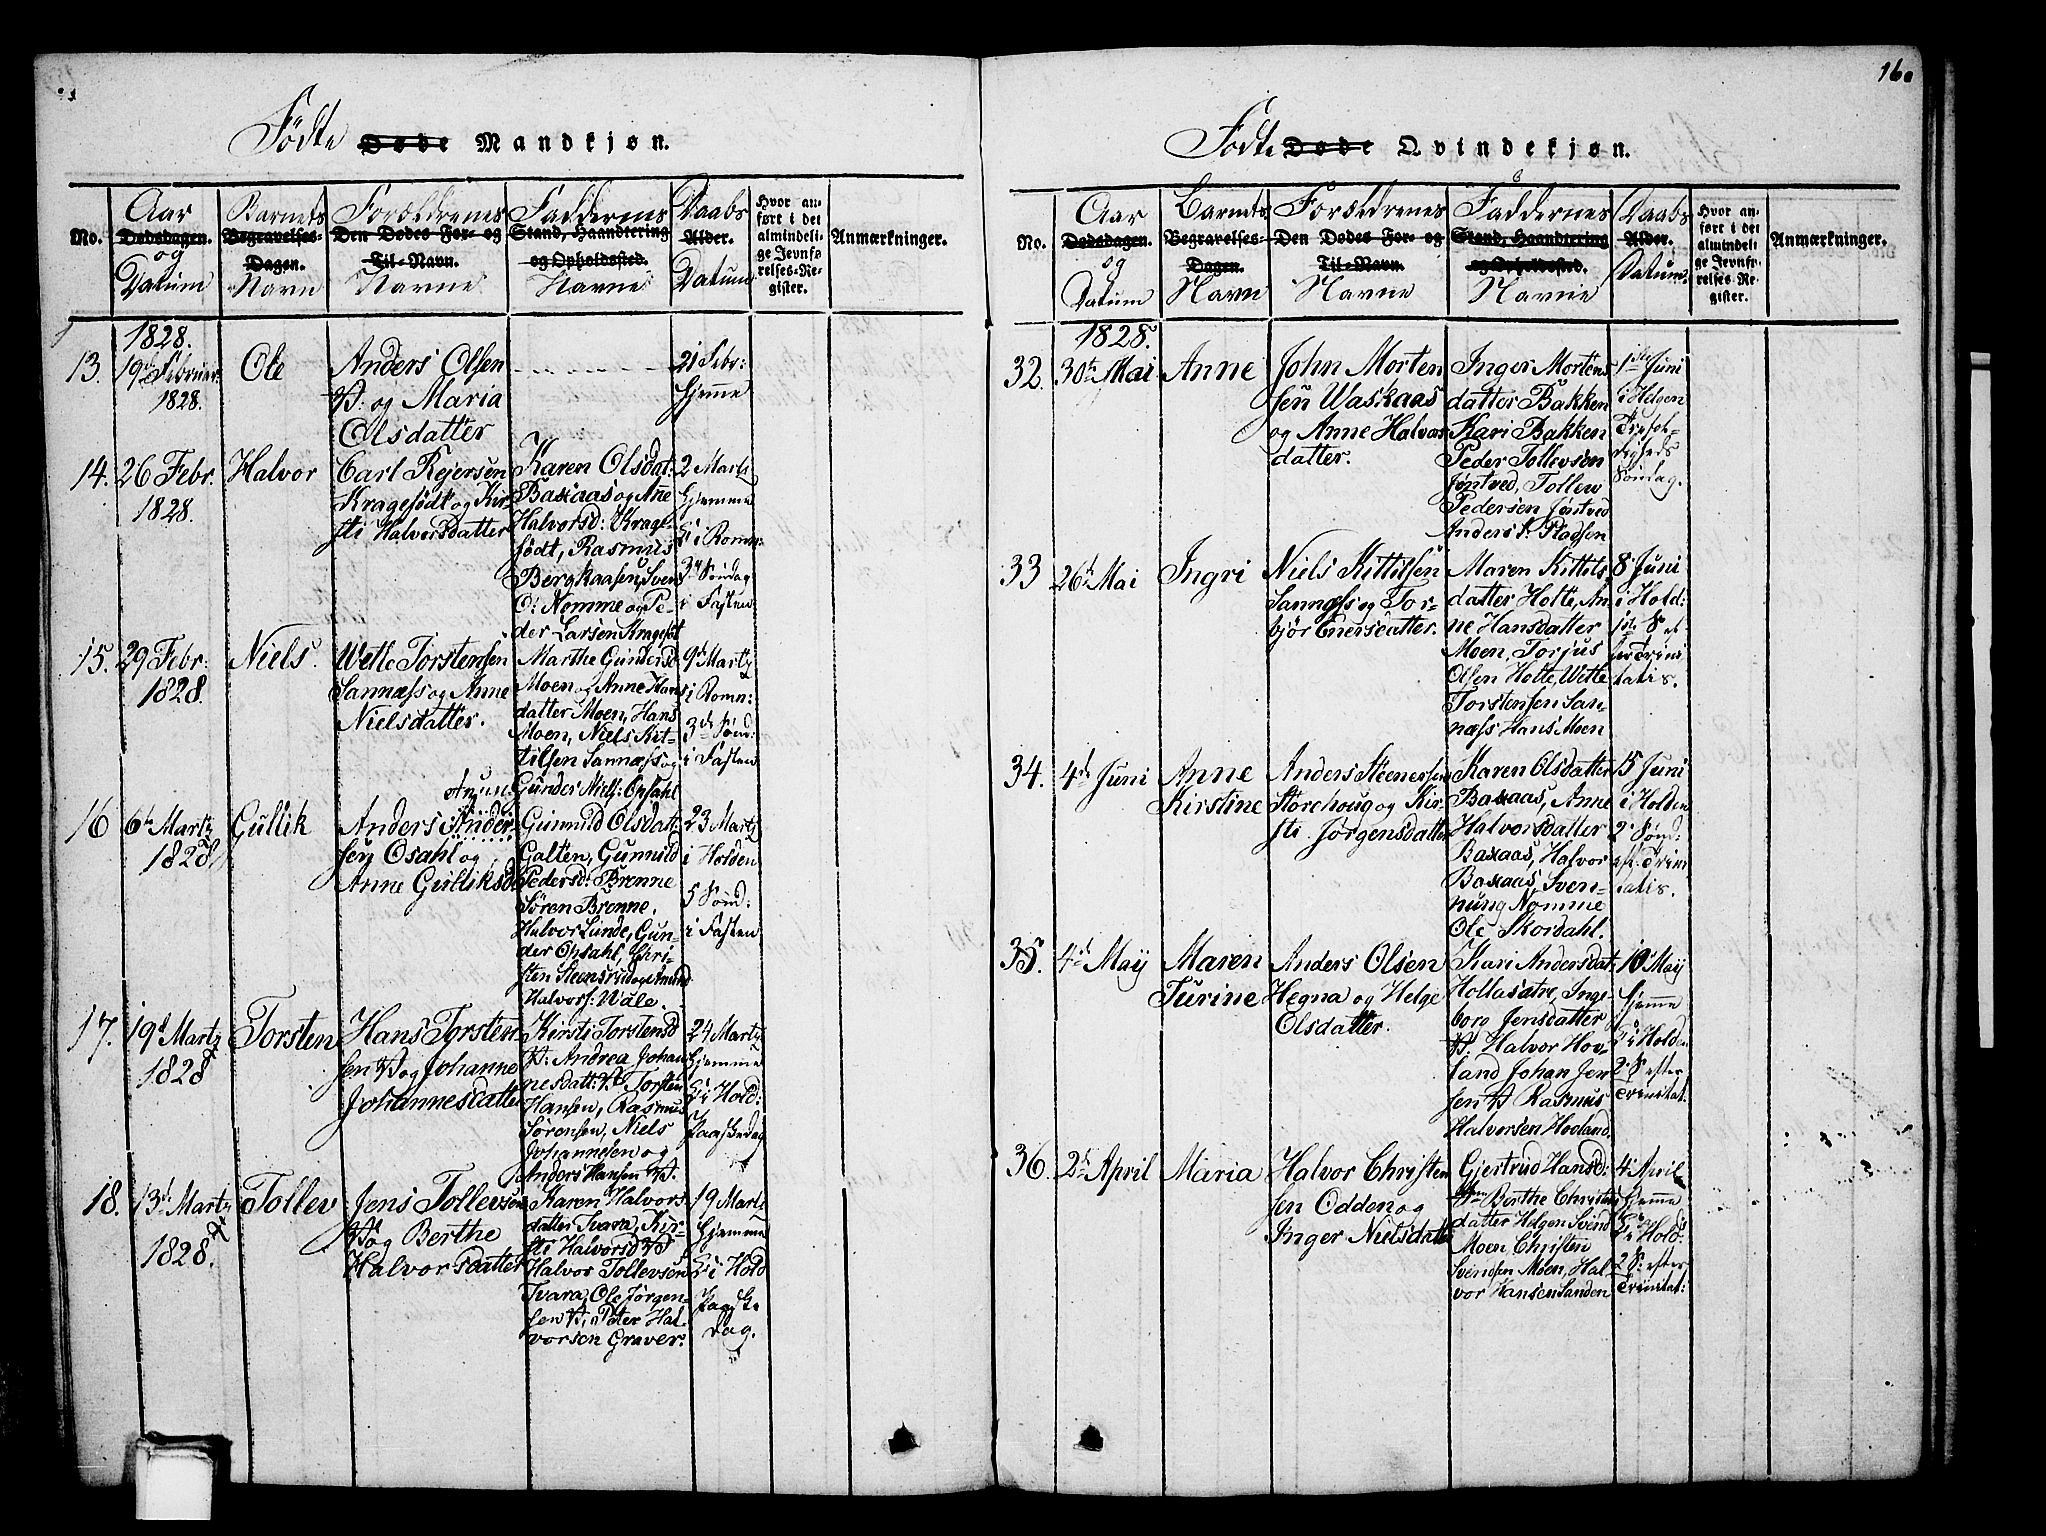 160
Födte Døde Mandkjøn.
No.
Aar
Dødsdagen.
og
Datum
Barnets
Begravelses-
Dagen.
Navn
Forældrenes
Den Dødes For- og
Til-Navn.
Navne
Faddernes
Stand, Haandtering
og Opholdssted.
Navne
Daabs
Alder.
Datum
Hvor an-
ført i det
almindeli-
ge Jevnfø-
relses-Re-
gister.
Anmærkninger.
1828.
13. 19d Februar 1828.
Ole
Anders Olsen
og Maria
Olsdatter
21 Febr:
Hjemme
14. 26 Febr. 1828.
Halvor
Carl Rejersen
Kragefödt og Kir-
sti Halversdatter
Karen Olsdat:
Baxaas og Ane
Halvorsd: Krage-
födt, Rasmus
Bergkaasen, Sven
O: Nomme og Pe-
der Larsen Kragefödt
2 Marti
Hjemme
i Romn:
3 Søndag
i Fasten
15. 29 Febr: 1828.
Niels.
Wetle Torstensen
Sannæss og Anne
Nielsdatter.
Marthe Gundersd
Moen og Anne Hans
datter Moen, Hans
Moen, Niels Kit-
tilsen Sannæss og
Gunder Niels: Opsahl
9d Marty
i Romn:
3d Sønd:
i Fasten
16 6te Martz 1828
Gullik
Anders Ander-
sen Osahl og
Anne Gulliksd
Gunnild Olsdatt:
Galten, Gunnild
Pedersd: Brenne
Sören Brenne,
Halvor Lunde, Gun-
der Opsahl, Chri-
sten Steensrud og Amund
Halvors: Wale.
23 Martz
i Holden
5 Sønd:
i Fasten
17. 19d Martz 1828
Torsten
Hans Torsten-
sen og Johanne
Johannesdatter
Kirsti Torstensd
Andrea Johan
nesdatt: Torsten
Hansen, Rasmus
Sørensen, Niels
Johannesen og
Anders Hansen
24 Martz
Hjemme
i Hold:
Paaskedag
18. 13d Martz 1828.
Tollev
Jens Tollevsen
og Berthe
Halvorsdatter
Karen Halvors
datter Tvara, Kir-
sti Halvorsd
Halvor Tollevsen
Tvara, Ole Jørgen-
sen, Peter Hal-
vorsen Graver:
19 Marti
Hjemme
i Hold
Paaske
Dag.
Födte Døde Qvindekjøn.
No.
Aar
Dødsdagen.
og
Datum
Barnets
Begravelses-
Dagen.
Navn
Forældrenes
Den Dødes For- og
Til-Navn.
Navne
Faddernes
Stand, Haandtering
og Opholdssted.
Navne
Daabs
Alder.
Datum.
Hvor an-
ført i det
almindeli-
ge Jevnfø-
relses-Re-
gister.
Anmærkninger.
1828.
32. 30te Mai
Anne
John Morten
sen Waskaas
og Anne Halvors
datter.
Inger Mortens
datter Bakken
Kari Bakken
Peder Tollevsen
Jøntved, Tollev
Pedersen Jøntved
Anders P. Pladsen
1ste Juni
i Holden
Trefol-
digheds
Søndag.
33 26d Mai
Ingri
Niels Kittilsen
Sannæss og Tor-
bjør Enersdatter.
Maren Kittils
datter Holte, An
ne Hansdatter
Moen, Torjus
Olsen Holte, Wetle
Torstensen San-
næss Hans Moen
8 Juni
i Hold:
1ste S ef-
ter Trini
tatis.
34. 4d Juni
Anne
Kirstine
Anders Steenersen
Storehoug og Kir-
sti Jørgensdatter
Karen Olsdatter
Baxaas, Anne
Halvorsdatter
Baxaas, Halvor
Baxaas, Sven-
nung Nomme
Ole Skordahl.
15 Juni
i Holden
2 Sønd:
eft: Trini
tatis.
35. 4de May
Maren
Turine
Anders Olsen
Hegna og Helge
Olsdatter.
Kari Andersdat:
Hollasætre, Inge-
borg Jensdatter
Halvor Hov-
land Johan Jen
sen Rasmus
Halvorsen Hovland,
10 May
Hjemme
i Holden
2 S: efter
Trinitat:
36. 2d April
Maria
Halvor Christen
sen Odden og
Inger Nielsdatter
Gjertrud Hansd:
Berthe Christens
datter Helgen Svend
Moen, Christen
Svendsen Moen, Hal-
vor Hansen Sanden
4 April
Hjemme
i Hold:
2 S: efter
Trinitat: